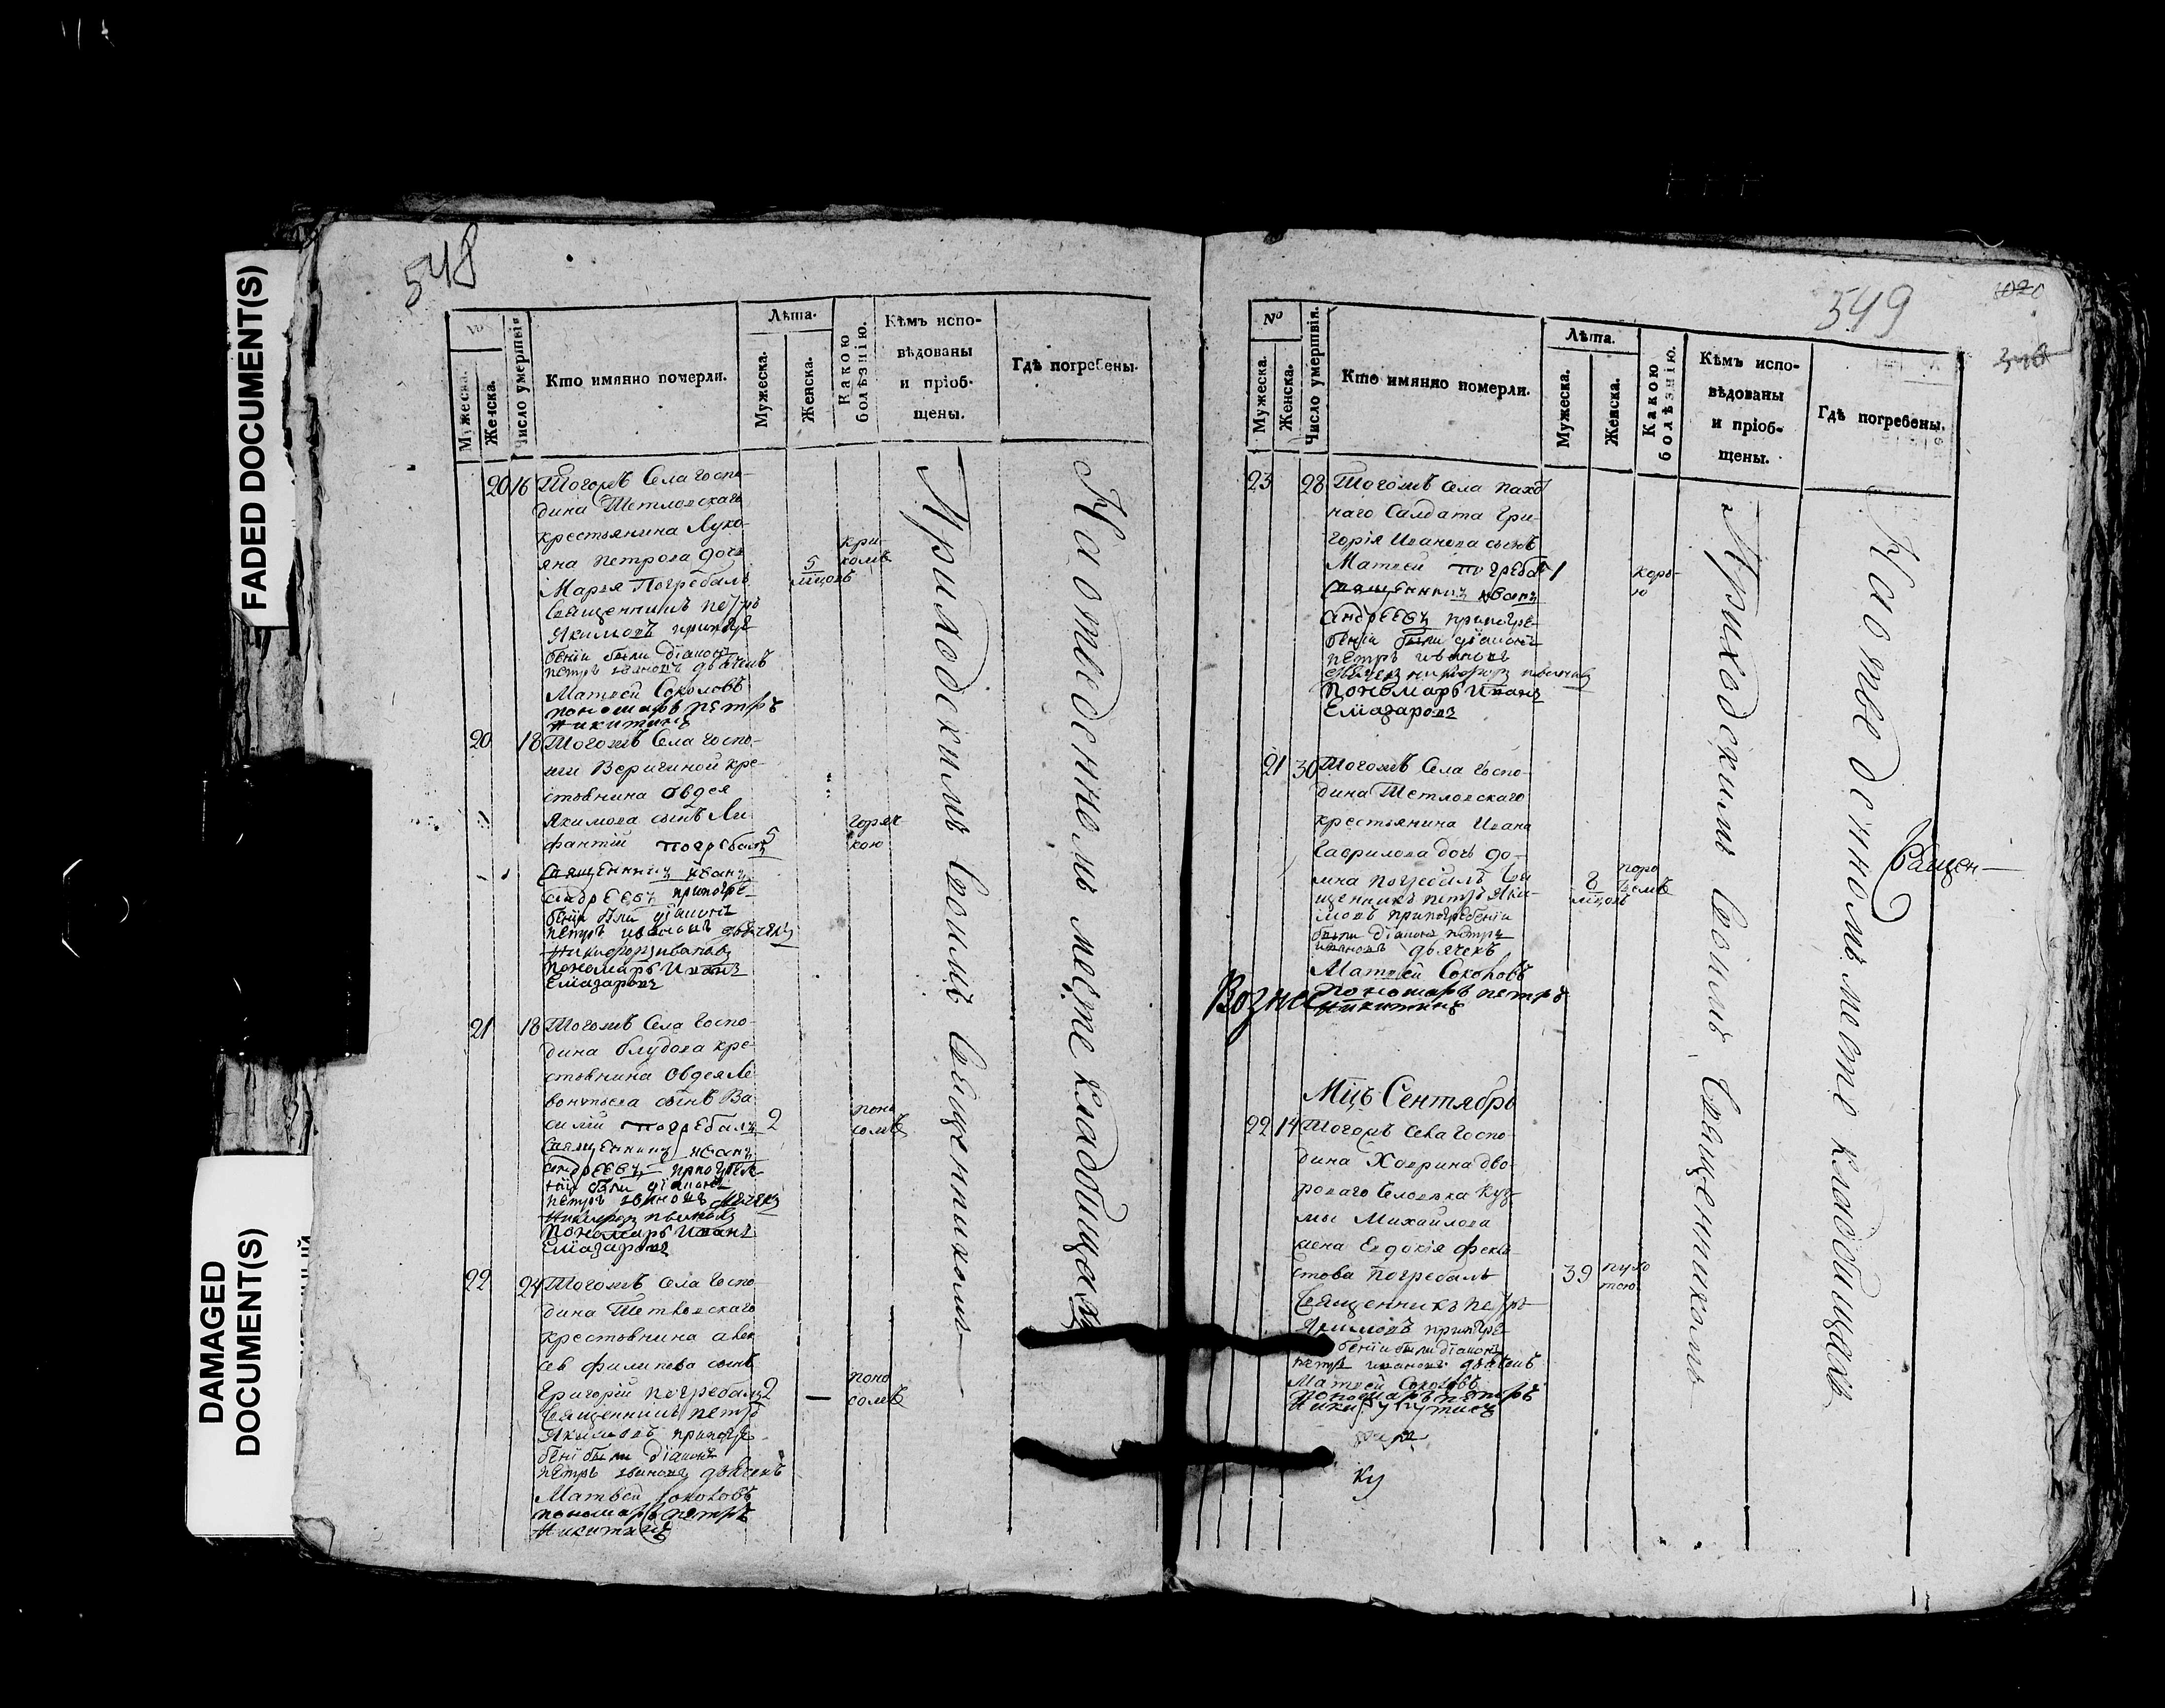 FADED DOCUMENT(S)
DAMAGED
DOCUMENT(S)
548
№
Мужеска.
Женска.
Число умершвія
Кто имянно померли.
Лѣта.
Мужеска.
Женска.
Какою
болѣзнію.
Кѣмъ испо-
вѣдованы
и пріоб-
щены.
Гдѣ погребены.
20 16 Тогожъ Села Госпо-
дина Шетловскаго
крестьянина Луко-
яна Петрова дочь
Марья Погребалъ
Священникъ Петръ
Якимовъ припогре
бении были діаконъ
петръ ивановъ дьячекъ
Матвей Соколовъ
пономарь петръ
Никитинъ
5
мцовъ
кри-
комъ
20 18 Тогожъ Села Госпо-
жи Веригиной кре-
стьянина Овдея
Якимова сынъ Ли
фантій погребалъ
5
Священникъ иванъ
андреевъ припогре-
беніи были діаконъ
петръ ивановъ дьячекъ
Никифоръ ивановъ
пономарь Иванъ
Елиазаровъ
горяч-
кою
21 18 Тогожъ Села Госпо-
дина Блудова кре-
стьянина Овдея Ле-
вонтьева сынъ Ва
силій погребалъ 2
Священникъ иванъ
андреевъ припогребе
ніи были діаконъ
петръ ивановъ дьячекъ
Никифоръ ивановъ
Пономарь Иванъ
Елиазаровъ
поно
сомъ
22 24 Тогожъ Села Госпо-
дина Шетловскаго
крестьянина алек
сея филипова сынъ
Григорій погребалъ 2 —
Священникъ петръ
Якимовъ припогре
беніи были діаконъ
петръ ивановъ дьячекъ
Матвей Соколовъ
пономарь петръ
Никитинъ
поно
сомъ
Приходскимъ Своимъ Священникомъ
На отведенномъ месте кладбищахъ
549
1020
№
Мужеска.
Женска.
Число умершвія.
Кто имянно померли.
Лѣта.
Мужеска.
Женска.
Какою
болѣзнію.
Кѣмъ испо-
вѣдованы
и пріоб-
щены.
Гдѣ погребены.
23 28 Тогожъ Села пахо
наго Салдата Гри-
горія Иванова сынъ
Матвей погребалъ 1
Священникъ иванъ
андреевъ припогре-
беніи были діаконъ
петръ ивановъ
дьячекъ никифоръ ивановъ
Пономарь Иванъ
Елиазаровъ
корь-
ю
21 30 Тогожъ Села Госпо-
дина Шетловскаго
крестьянина Ивана
Гаврилова дочь до-
мна погребалъ Свя
щенникъ петръ Яки-
мовъ припогребеніи
были діаконъ петръ
ивановъ дьячекъ
Матвей Соколовъ
Пономарь петръ
Никитинъ
8
мцовъ
Вознес
Священ—
Мцъ Сентябрь
22 14 Тогожъ Села Госпо
дина Хаврина дво-
роваго Человека Куз-
мы Михайлова
жена Евдокія Феки-
стова погребалъ
Священникъ петръ
Якимовъ припогре-
беніи были діаконъ
петръ ивановъ дьячекъ
Матвей Соколовъ
пономарь петръ
39
Ку
Приходскимъ Своимъ Священникомъ
На отведенномъ месте кладбищахъ